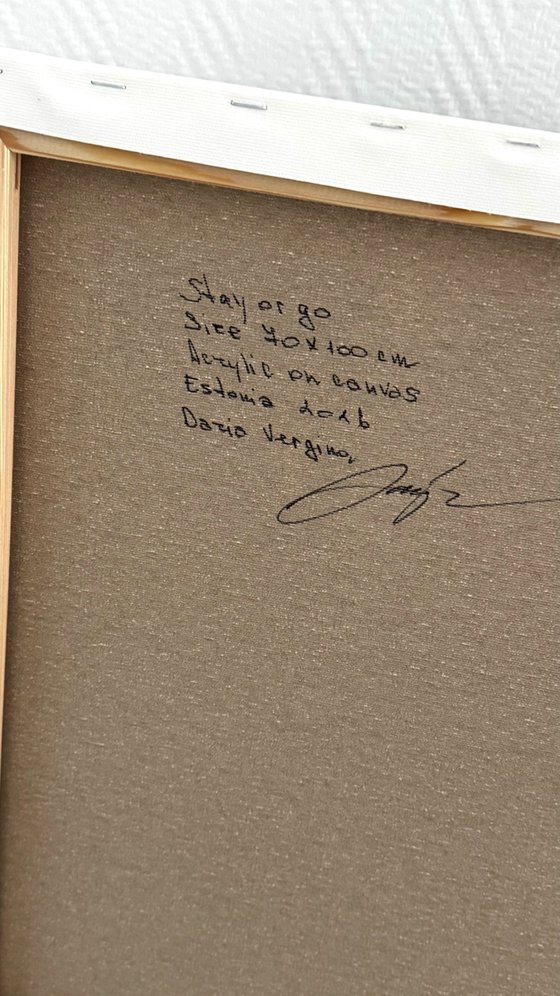 Stay or go
Size 70x100 cm
Acrylic on canvas
Estonia 2026
Dario Vergino,